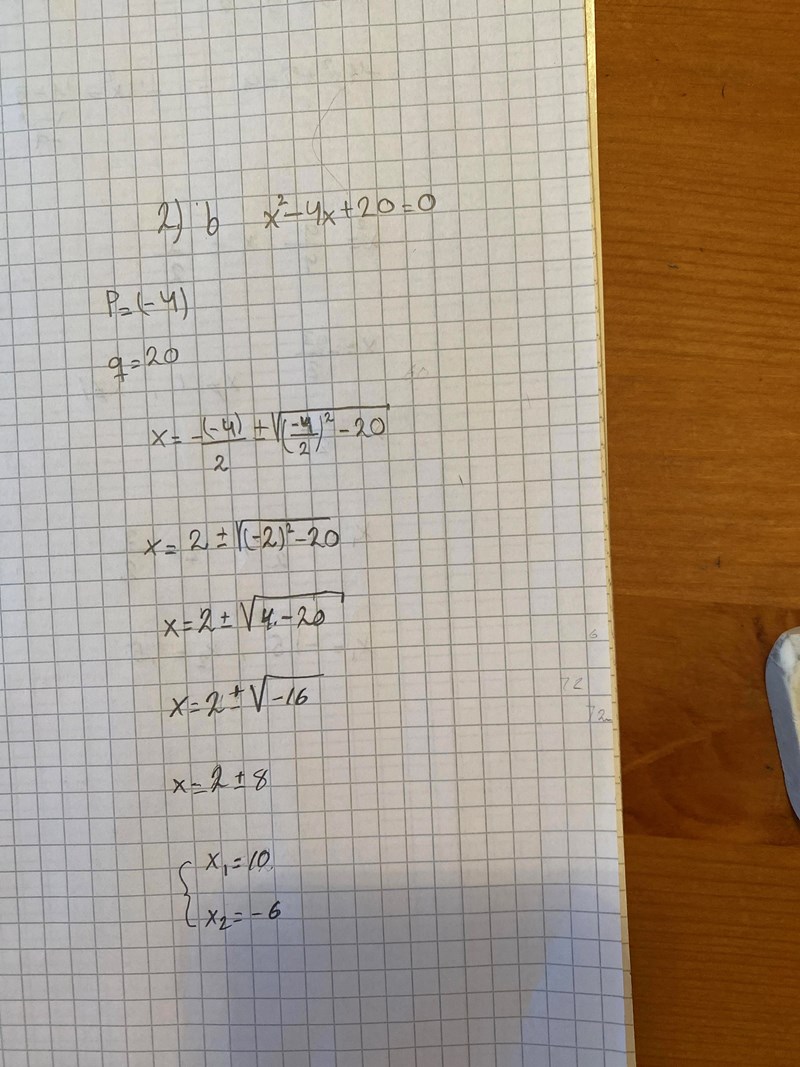 2) b x² - 4x + 20 = 0
P = (-4)
q = 20
x = -(-4)/2 ± √((-4/2)² - 20)
x = 2 ± √((-2)² - 20)
x = 2 ± √(4 - 20)
x = 2 ± √(-16)
x = 2 ± 8
{ x₁ = 10
x₂ = -6